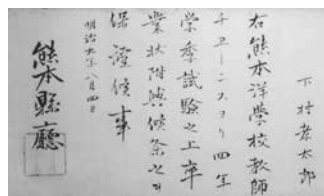 下村孝太郎
右熊本洋学校教師
チエーニスヨリ四年
学季試験之上卒
業状附與候条之ヲ
保證候事
明治九年八月四日
熊本縣廳